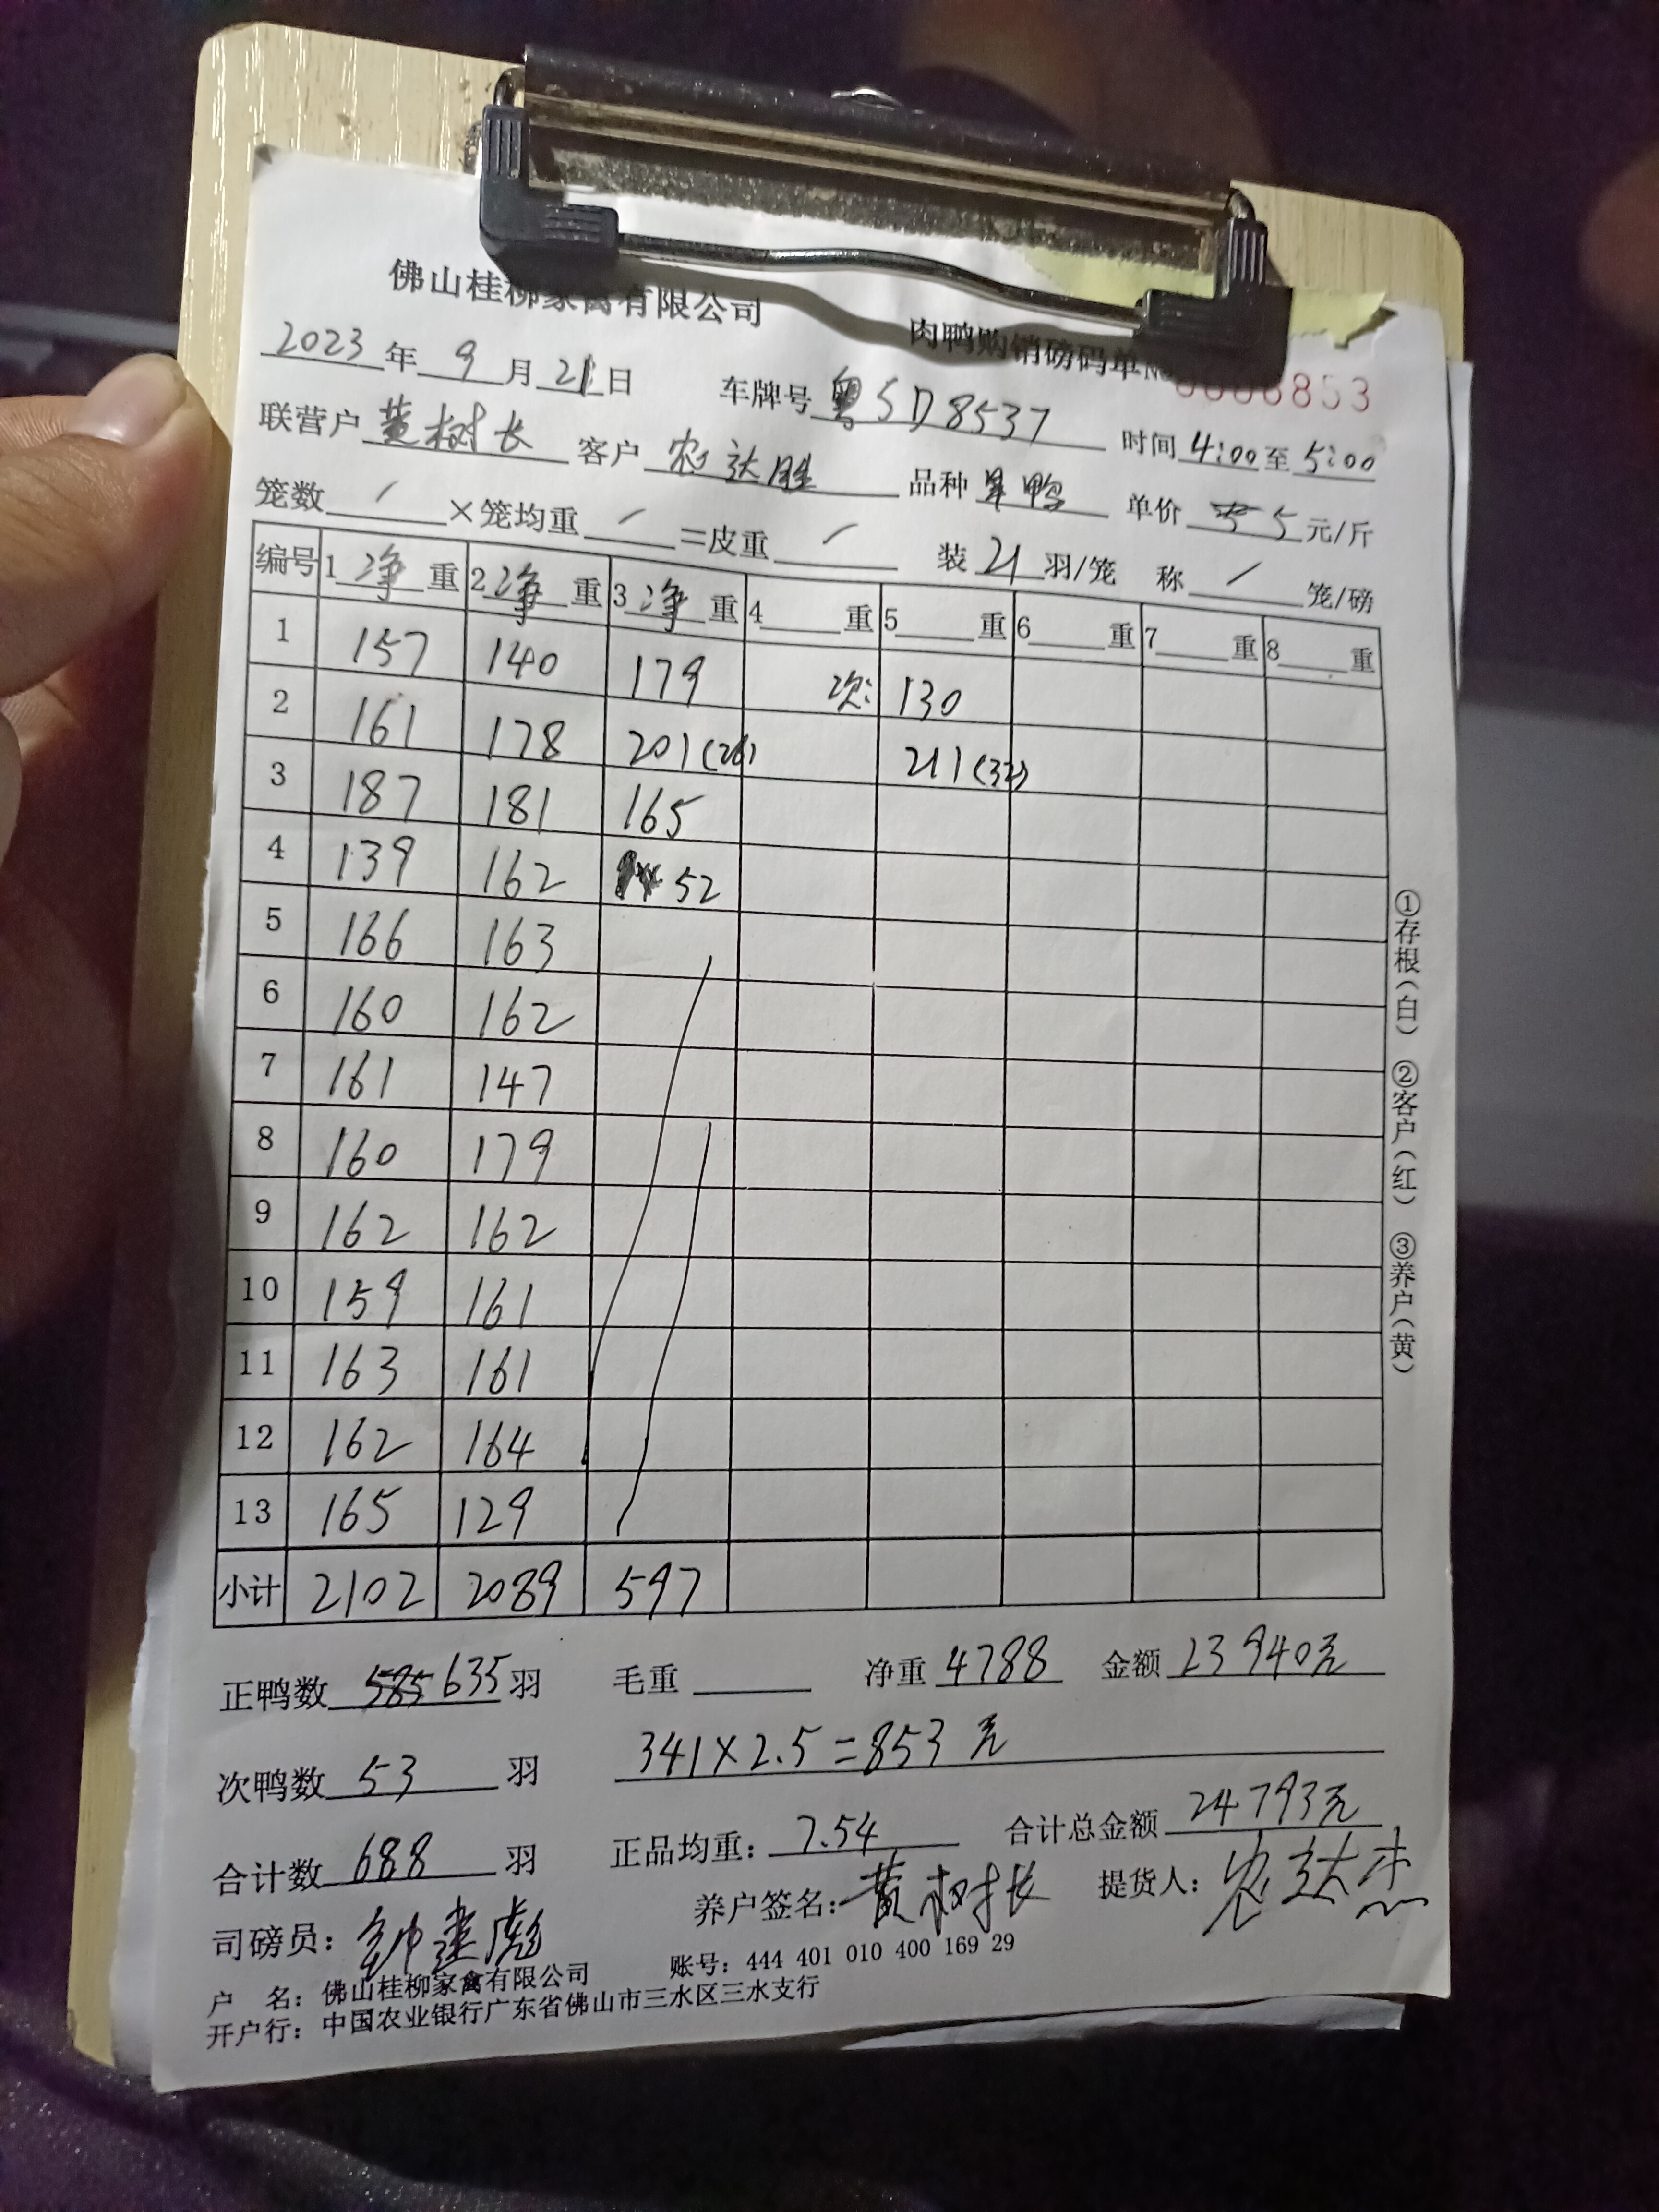 佛山桂柳家禽有限公司 肉鸭购销磅码单№ 0006853
2023年 9月 21日 车牌号 粤SD8537 时间 4:00 至 5:00
联营户 黄树长 客户 农达胜 品种 旱鸭 单价 5 元/斤
笼数 / ×笼均重 / =皮重 / 装 21 羽/笼 称 / 笼/磅
编号 1净重 2净重 3净重 4重 5重 6重 7重 8重
1 157 140 179 次: 130
2 161 178 201(26) 211(32)
3 187 181 165
4 139 162 52
5 166 163
6 160 162
7 161 147
8 160 179
9 162 162
10 159 161
11 163 161
12 162 164
13 165 129
小计 2102 2089 597
正鸭数 585 635 羽 毛重 净重 4788 金额 23940元
次鸭数 53 羽 341×2.5=853元
合计数 688 羽 正品均重: 7.54 合计总金额 24793元
司磅员: 钟建彪 养户签名: 黄树长 提货人: 农达杰
户 名: 佛山桂柳家禽有限公司 账号: 444 401 010 400 169 29
开户行: 中国农业银行广东省佛山市三水区三水支行
①存根(白) ②客户(红) ③养户(黄)